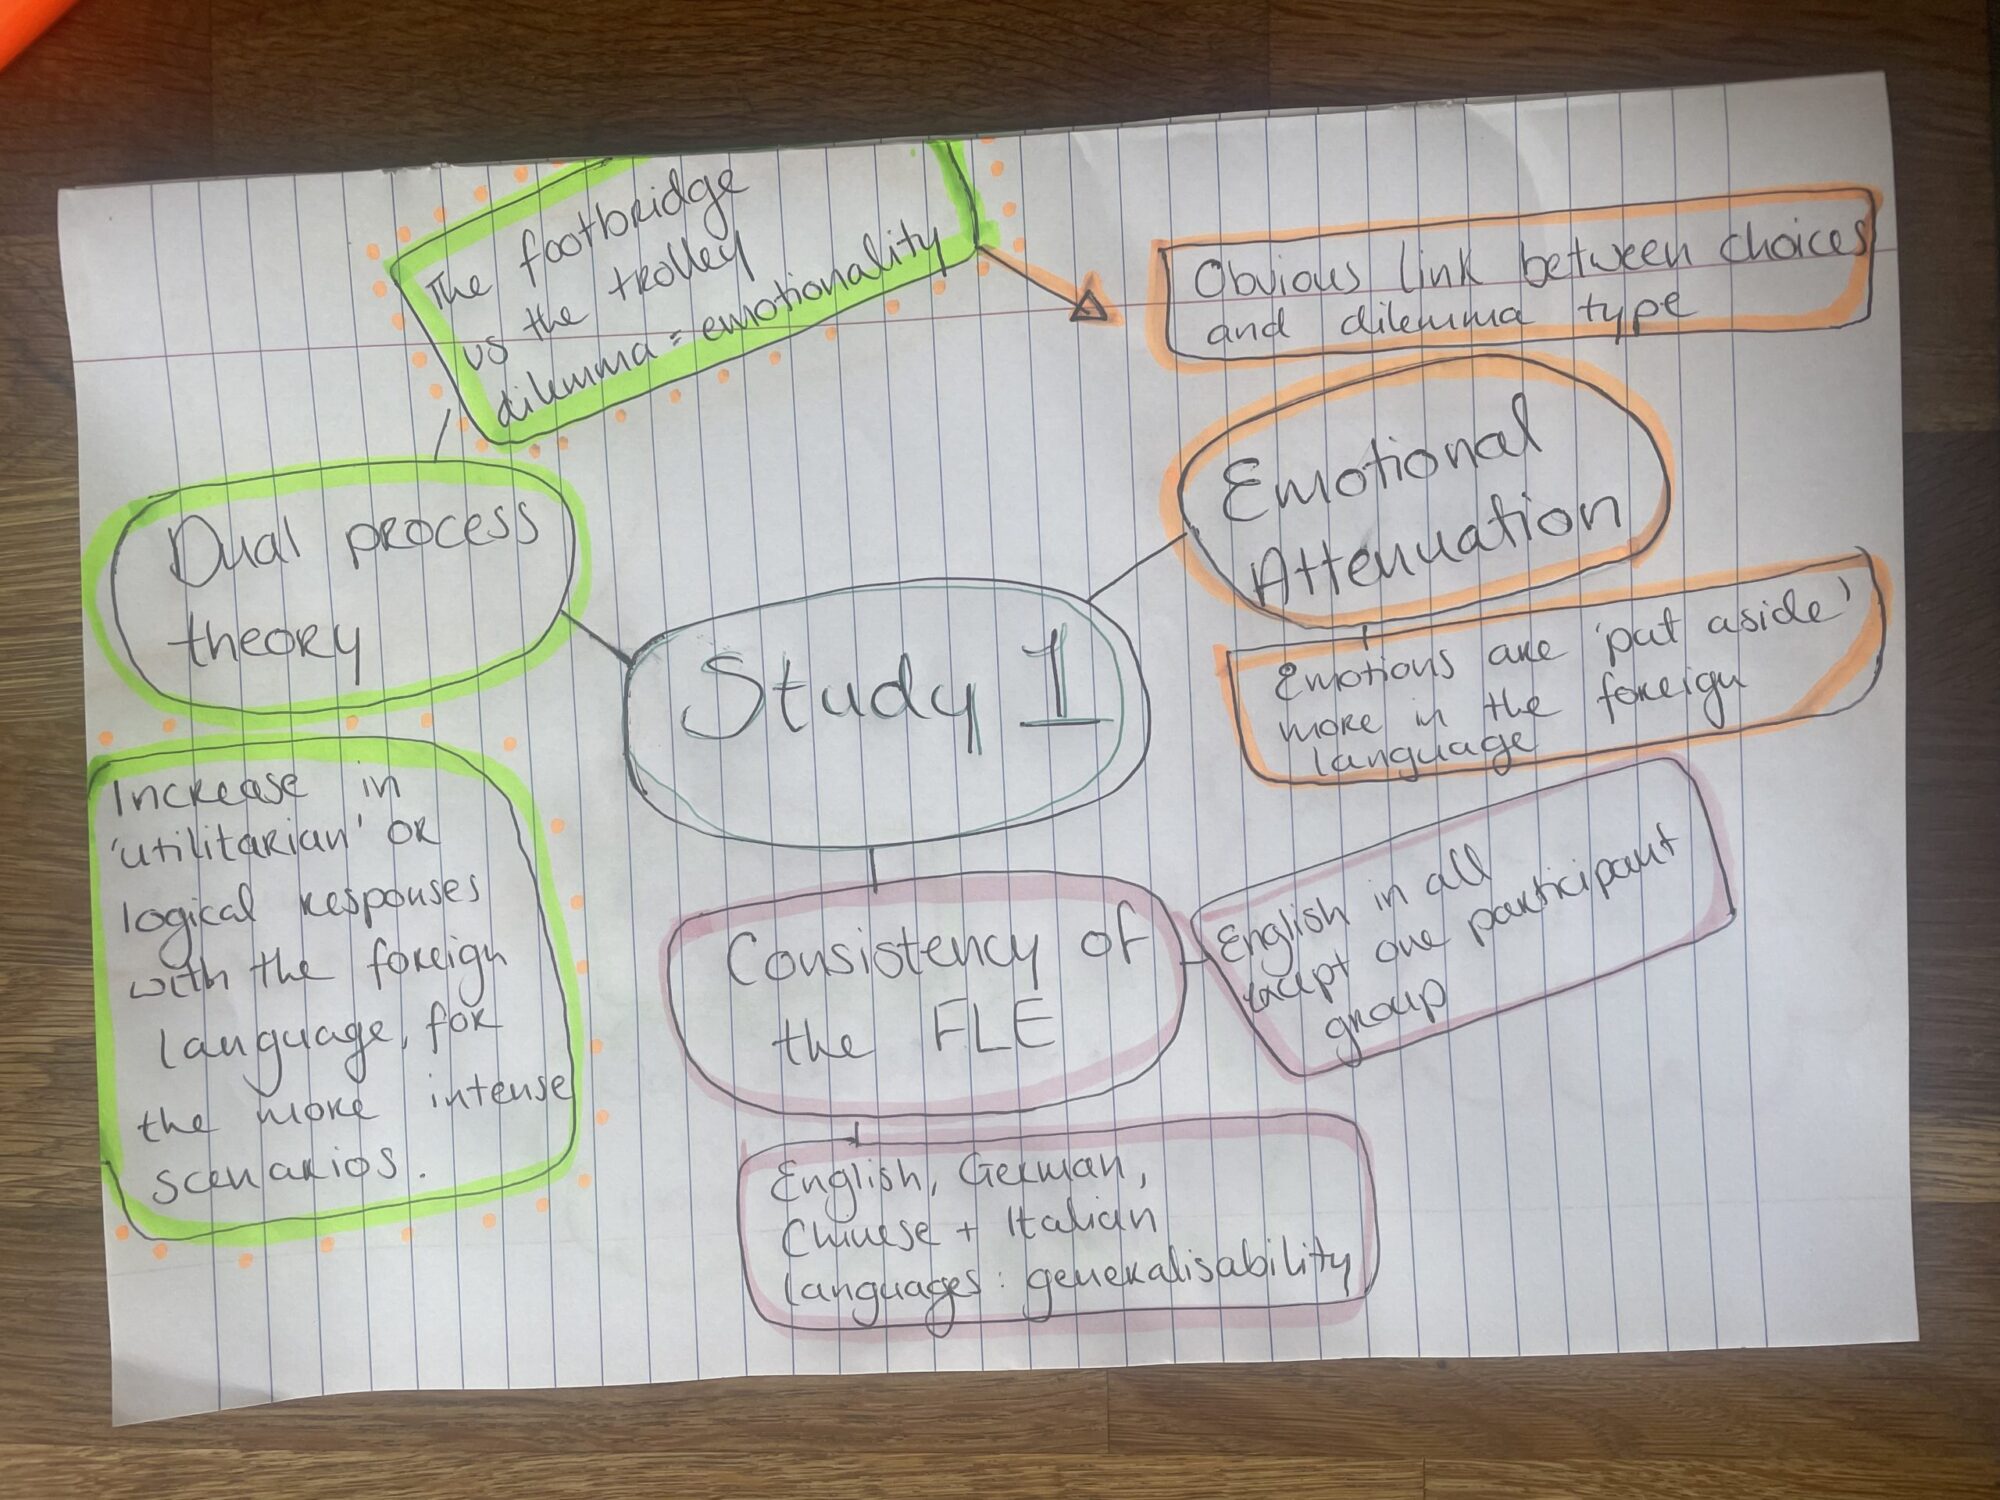 The footbridge
vs the trolley
dilemma = emotionality
Obvious link between choices
and dilemma type
Emotional
Attenuation
Emotions are 'put aside'
more in the foreign
language
Dual process
theory
Study 1
Increase in
'utilitarian' or
logical responses
with the foreign
language, for
the more intense
scenarios.
Consistency of
the FLE
English in all
except one participant
group
English, German,
Chinese + Italian
languages: generalisability